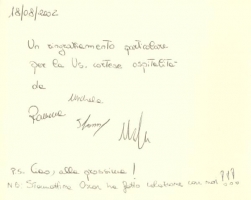 18/08/2002
Un ringraziamento particolare
per la Vs. cortese ospitalità
da
Michele
P.S. Ciao, alla prossima!
NB: Stamattina Oscar ha fatto colazione con noi !!!...